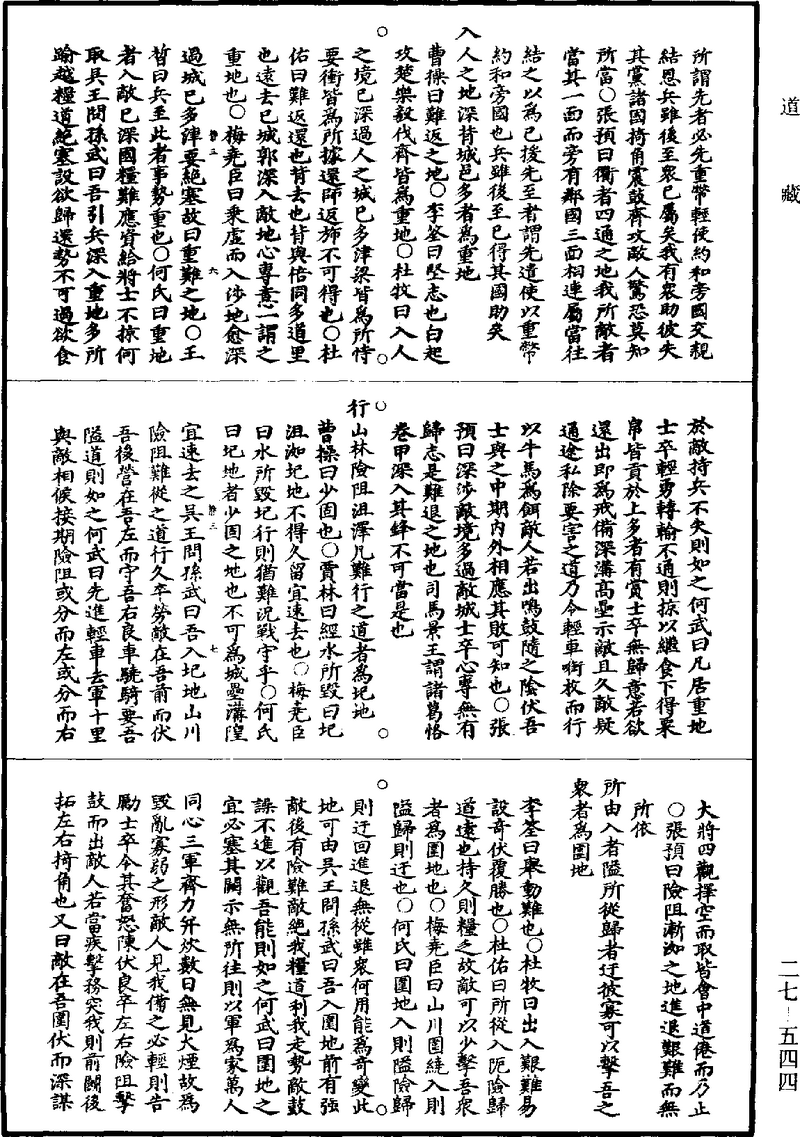 道藏
所謂先者必先重幣輕使約和旁國交親
結恩兵雖後至衆已屬矣我有衆助彼失
其黨諸國掎角震鼓齊攻敵人驚恐莫知
所當○張預曰衢者四通之地我所敵者
當其一面而旁有鄰國三面相連屬當往
結之以爲已援先至者謂先遣使以重幣
約和旁國也兵雖後至已得其國助矣
入人之地深背城邑多者爲重地
曹操曰難返之地○李筌曰堅志也白起
攻楚樂毅伐齊皆爲重地○杜牧曰入人
之境已深過人之城已多津梁皆爲所恃
要衝皆爲所據還師返旆不可得也○杜
佑曰難返還也背去也背與倍同多道里
也遠去已城郭深入敵地心專意一謂之
重地也○梅堯臣曰乘虛而入涉地愈深
過城已多津要絕塞故曰重難之地○王
晳曰兵至此者事勢重也○何氏曰重地
者入敵已深國糧難應資給將士不掠何
取吳王問孫武曰吾引兵深入重地多所
踰越糧道絕塞設欲歸還勢不可過欲食
於敵持兵不失則如之何武曰凡居重地
士卒輕勇轉輸不通則掠以繼食下得粟
帛皆貢於上多者有賞士卒無歸意若欲
還出即爲戒備深溝高壘示敵且久敵疑
通途私除要害之道乃令輕車銜枚而行
以牛馬爲餌敵人若出鳴鼓隨之陰伏吾
士與之中期內外相應其敗可知也○張
預曰深涉敵境多過敵城士卒心專無有
歸志是難退之地也司馬景王謂諸葛恪
卷甲深入其鋒不可當是也
行山林險阻沮澤凡難行之道者爲圮地
曹操曰少固也○賈林曰經水所毀曰圮
沮洳圮地不得久留宜速去也○梅堯臣
曰水所毀圮行則猶難況戰守乎○何氏
曰圮地者少固之地也不可爲城壘溝隍
宜速去之吳王問孫武曰吾入圮地山川
險阻難從之道行久卒勞敵在吾前而伏
吾後營在吾左而守吾右良車驍騎要吾
隘道則如之何武曰先進輕車去軍十里
與敵相候接期險阻或分而左或分而右
大將四觀擇空而取皆會中道倦而乃止
○張預曰險阻漸洳之地進退艱難而無
所依
所由入者隘所從歸者迂彼寡可以擊吾之
衆者爲圍地
李筌曰舉動難也○杜牧曰出入艱難易
設奇伏覆勝也○杜佑曰所從入阨險歸
道遠也持久則糧乏故敵可以少擊吾衆
者爲圍地也○梅堯臣曰山川圍繞入則
隘歸則迂也○何氏曰圍地入則隘險歸
則迂回進退無從雖衆何用能爲奇變此
地可由吳王問孫武曰吾入圍地前有強
敵後有險難敵絕我糧道利我走勢敵鼓
譟不進以觀吾能則如之何武曰圍地之
宜必塞其闕示無所往則以軍爲家萬人
同心三軍齊力并炊數日無見火煙故爲
毀亂寡弱之形敵人見我備之必輕則告
勵士卒令其奮怒陳伏良卒左右險阻擊
鼓而出敵人若當疾擊務突我則前鬭後
拓左右掎角也又曰敵在吾圍伏而深謀
二七-五四四